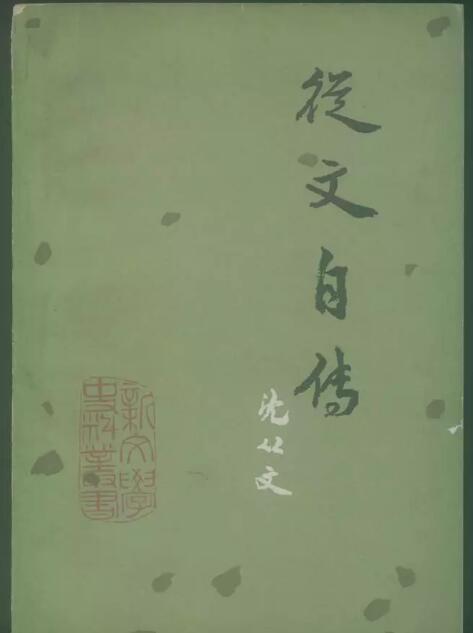 從文自传
沈从文
新文學
史料叢書